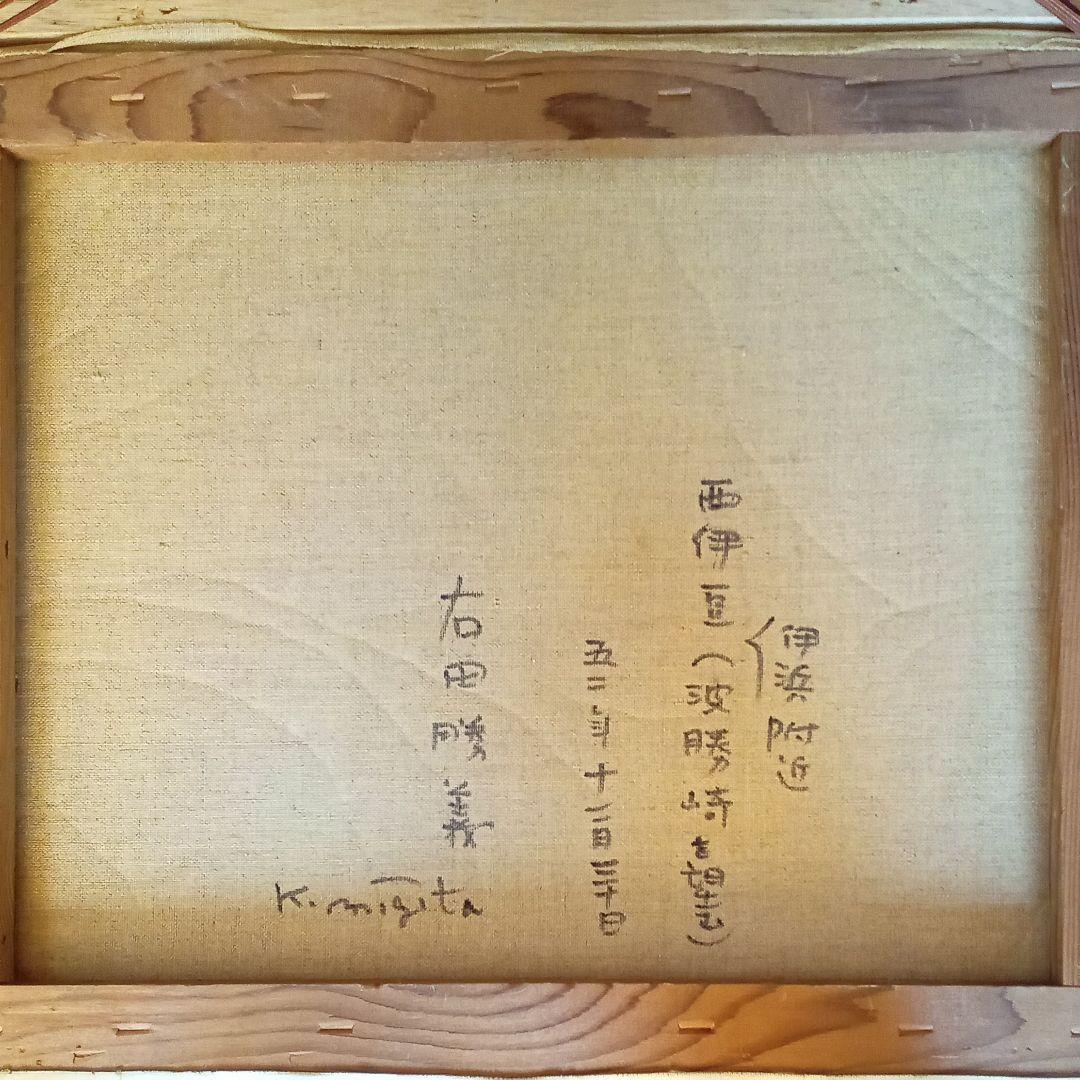 伊浜附近
西伊豆(波勝崎を望む)
五二年十二月三十日
右田勝義
K. migita